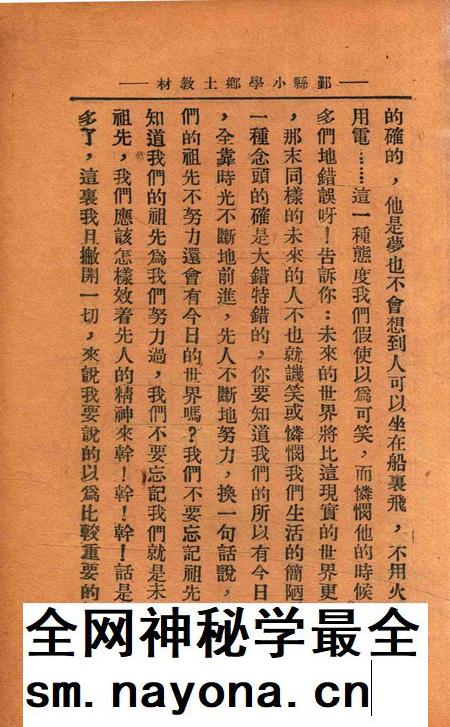 鄞縣小學鄉土教材
的確的，他是夢也不會想到人可以坐在船裏飛，不用火
用電……這一種態度我們假使以爲可笑，而憐憫他的時候
多們地錯誤呀！告訴你：未來的世界將比這現實的世界更
，那末同樣的未來的人不也就譏笑或憐憫我們生活的簡陋
一種念頭的確是大錯特錯的，你要知道我們的所以有今日
，全靠時光不斷地前進，先人不斷地努力，換一句話說，
們的祖先不努力還會有今日的世界嗎？我們不要忘記祖先
知道我們的祖先爲我們努力過，我們不要忘記我們就是未
祖先，我們應該怎樣效着先人的精神來幹！幹！幹！話是
多了，這裏我且撇開一切，來說我要說的以爲比較重要的
全网神秘学最全
sm.nayona.cn